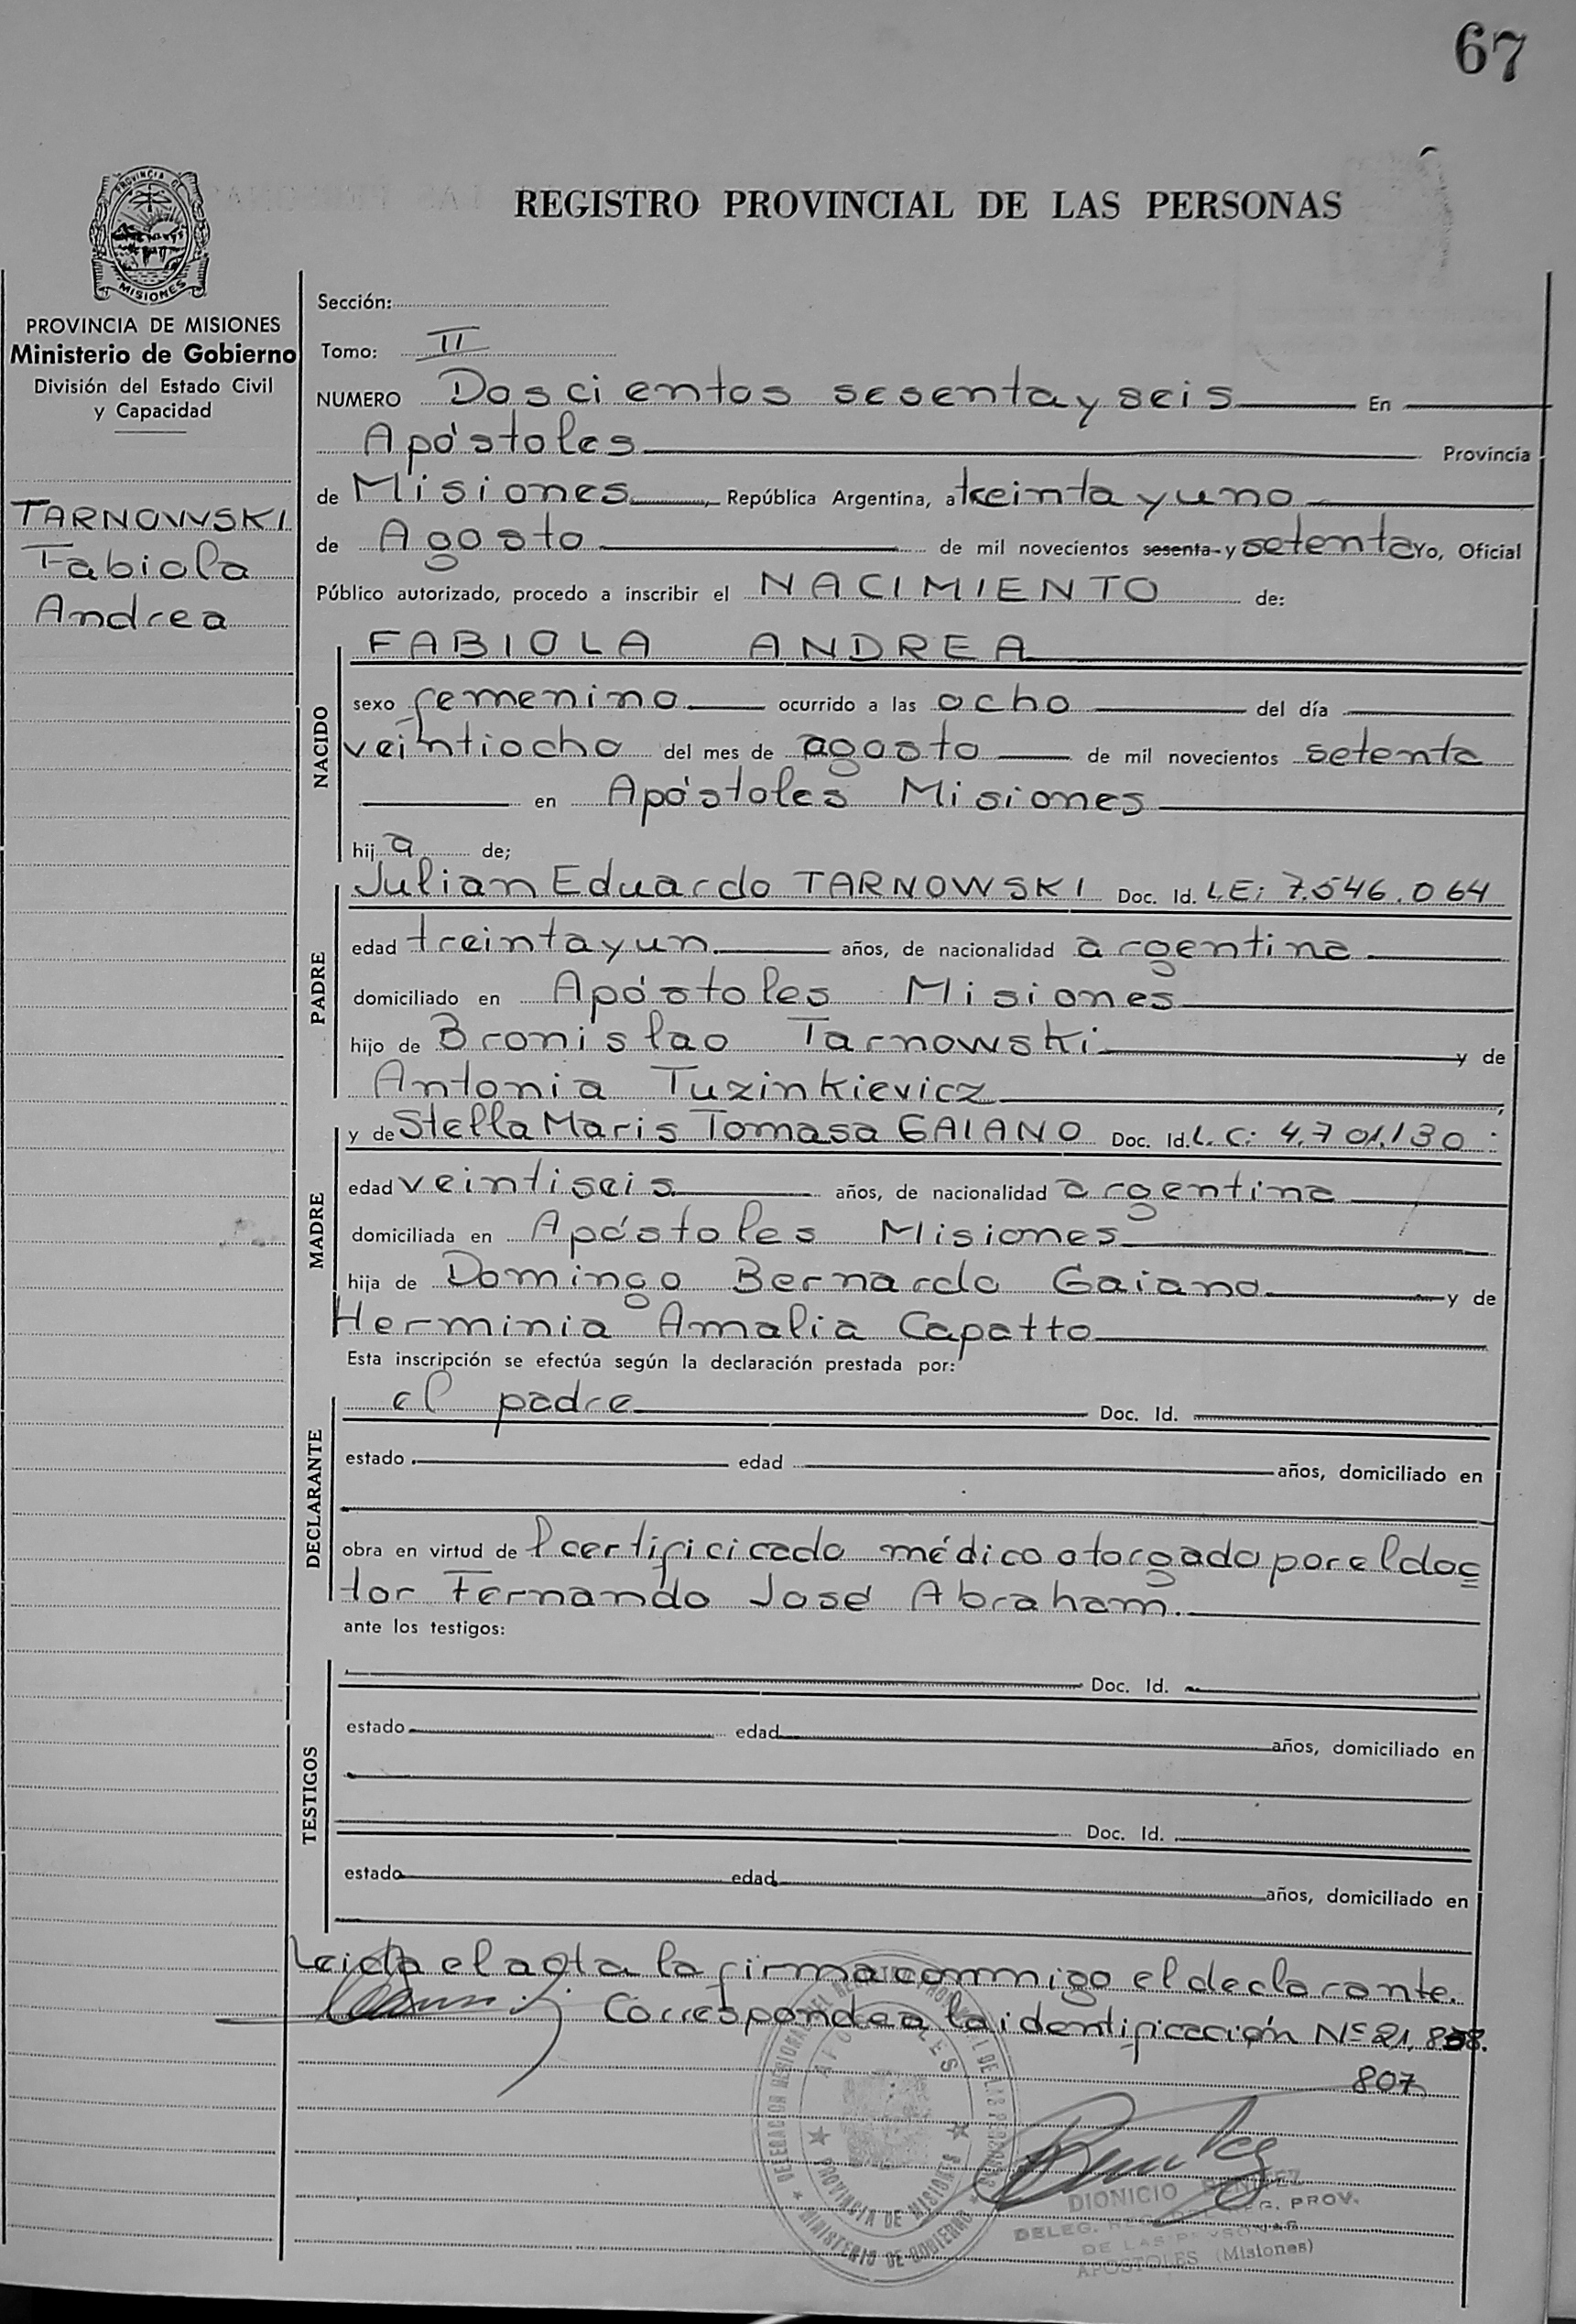 67
PROVINCIA DE
MISIONES
REGISTRO PROVINCIAL DE LAS PERSONAS
PROVINCIA DE MISIONES
Ministerio de Gobierno
División del Estado Civil
y Capacidad
TARNOWSKI
Fabiola
Andrea
Sección:
Tomo: II
NUMERO Doscientos sesenta y seis En
Apóstoles Provincia
de Misiones, República Argentina, a treinta y uno
de Agosto de mil novecientos sesenta y setenta Yo, Oficial
Público autorizado, procedo a inscribir el NACIMIENTO de:
FABIOLA ANDREA
NACIDO
sexo femenino ocurrido a las ocho del día
veintiocho del mes de agosto de mil novecientos setenta
en Apóstoles Misiones
hija de;
PADRE
Julian Eduardo TARNOWSKI Doc. Id. L.E: 7.546.064
edad treinta y un años, de nacionalidad argentina
domiciliado en Apóstoles Misiones
hijo de Bronislao Tarnowski y de
Antonia Tuzinkievicz,
MADRE
y de Stella Maris Tomasa GAIANO Doc. Id. L.C: 4.701.130:
edad veintiseis años, de nacionalidad argentina
domiciliada en Apóstoles Misiones
hija de Domingo Bernardo Gaiano y de
Herminia Amalia Capatto
Esta inscripción se efectúa según la declaración prestada por:
DECLARANTE
el padre Doc. Id.
estado edad años, domiciliado en
obra en virtud de l certificicado médico otorgado por el doc=
tor Fernando José Abraham.
ante los testigos:
TESTIGOS
Doc. Id.
estado edad años, domiciliado en
Doc. Id.
estado edad años, domiciliado en
Leida el acta la firma conmigo el declarante.
Corresponde a la identificación Nº 21.808.
807
DELEGACION REGIONAL DEL REGISTRO PROVINCIAL DE LAS PERSONAS
APOSTOLES
PROVINCIA DE MISIONES
MINISTERIO DE GOBIERNO
DIONICIO BENITEZ
DELEG. REG. DEL REG. PROV.
DE LAS PERSONAS
APOSTOLES (Misiones)